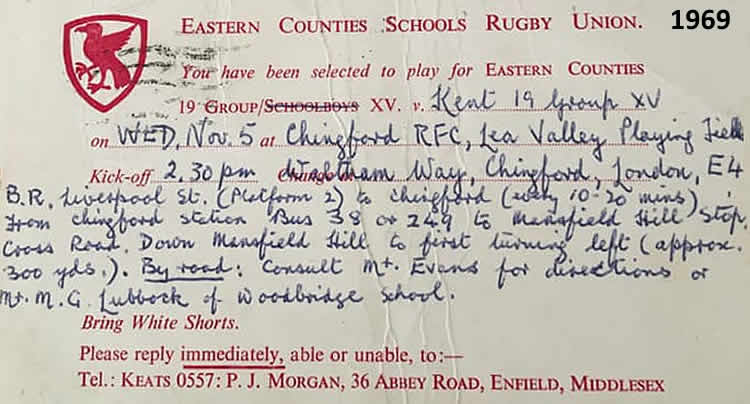 1969
EASTERN COUNTIES SCHOOLS RUGBY UNION.
You have been selected to play for EASTERN COUNTIES
19 GROUP/SCHOOLBOYS XV. v. Kent 19 Group XV
on WED, Nov. 5 at Chingford RFC, Lea Valley Playing Field
Kick-off 2.30 pm Waltham Way, Chingford, London, E4
B.R. Liverpool St. (Platform 2) to Chingford (every 10-20 mins)
From Chingford Station Bus 38 or 249 to Mansfield Hill Stop,
Cross Road. Down Mansfield Hill to first turning left (approx.
300 yds.). By road: Consult Mr. Evans for directions or
Mr. M.G. Lubbock of Woodbridge School.
Bring White Shorts.
Please reply immediately, able or unable, to:—
Tel.: KEATS 0557: P. J. MORGAN, 36 ABBEY ROAD, ENFIELD, MIDDLESEX